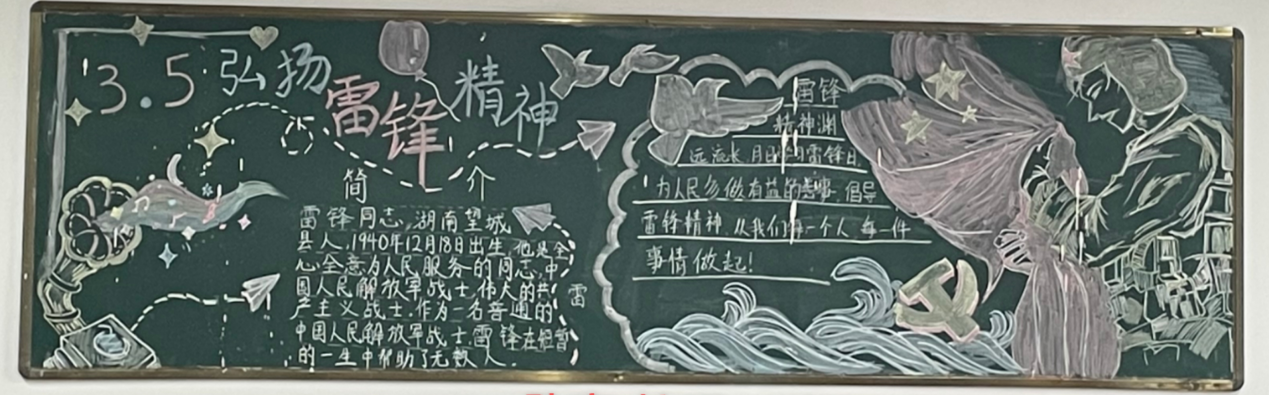 3.5 弘扬
雷锋
精神
简介
雷锋同志,湖南望城
县人,1940年12月18日出生,他是全
心全意为人民服务的同志,中
国人民解放军战士,伟大的共
产主义战士,作为一名普通的
中国人民解放军战士,雷锋在短暂
的一生中帮助了无数人。
雷
雷锋
精神渊
远流长,月日学习雷锋日
为人民多做有益的 事,倡导
雷锋精神,从我们每一个人 每一件
事情做起!